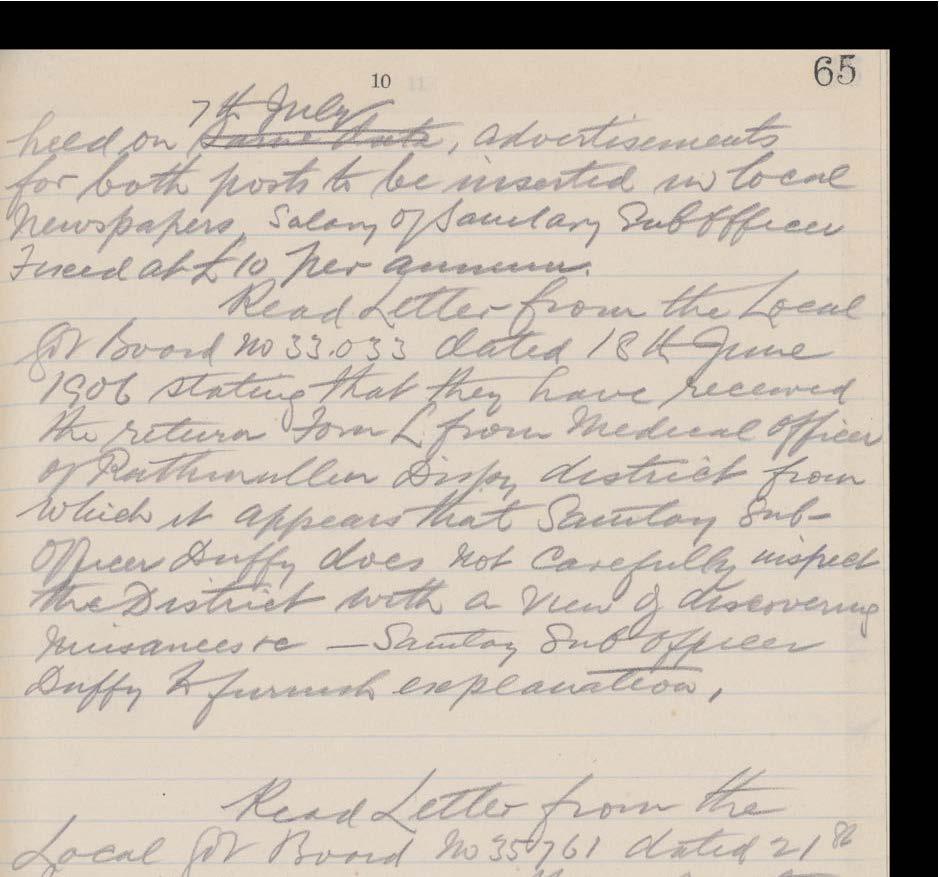 10
65
7th July
held on same date, advertisements
for both posts to be inserted in local
Newspapers, Salary of Sanitary Sub Officer
Fixed at £10 per annum.
Read Letter from the Local
Gov Board No 33.033 dated 18th June
1906 stating that they have received
the return Form L from Medical Officer
of Rathmullen Dispy district from
which it appears that Sanitary Sub-
Officer Duffy does not Carefully inspect
the District with a view of discovering
Nuisances &c — Sanitary Sub Officer
Duffy to furnish explanation,
Read Letter from the
Local Gov Board No 35761 dated 21st